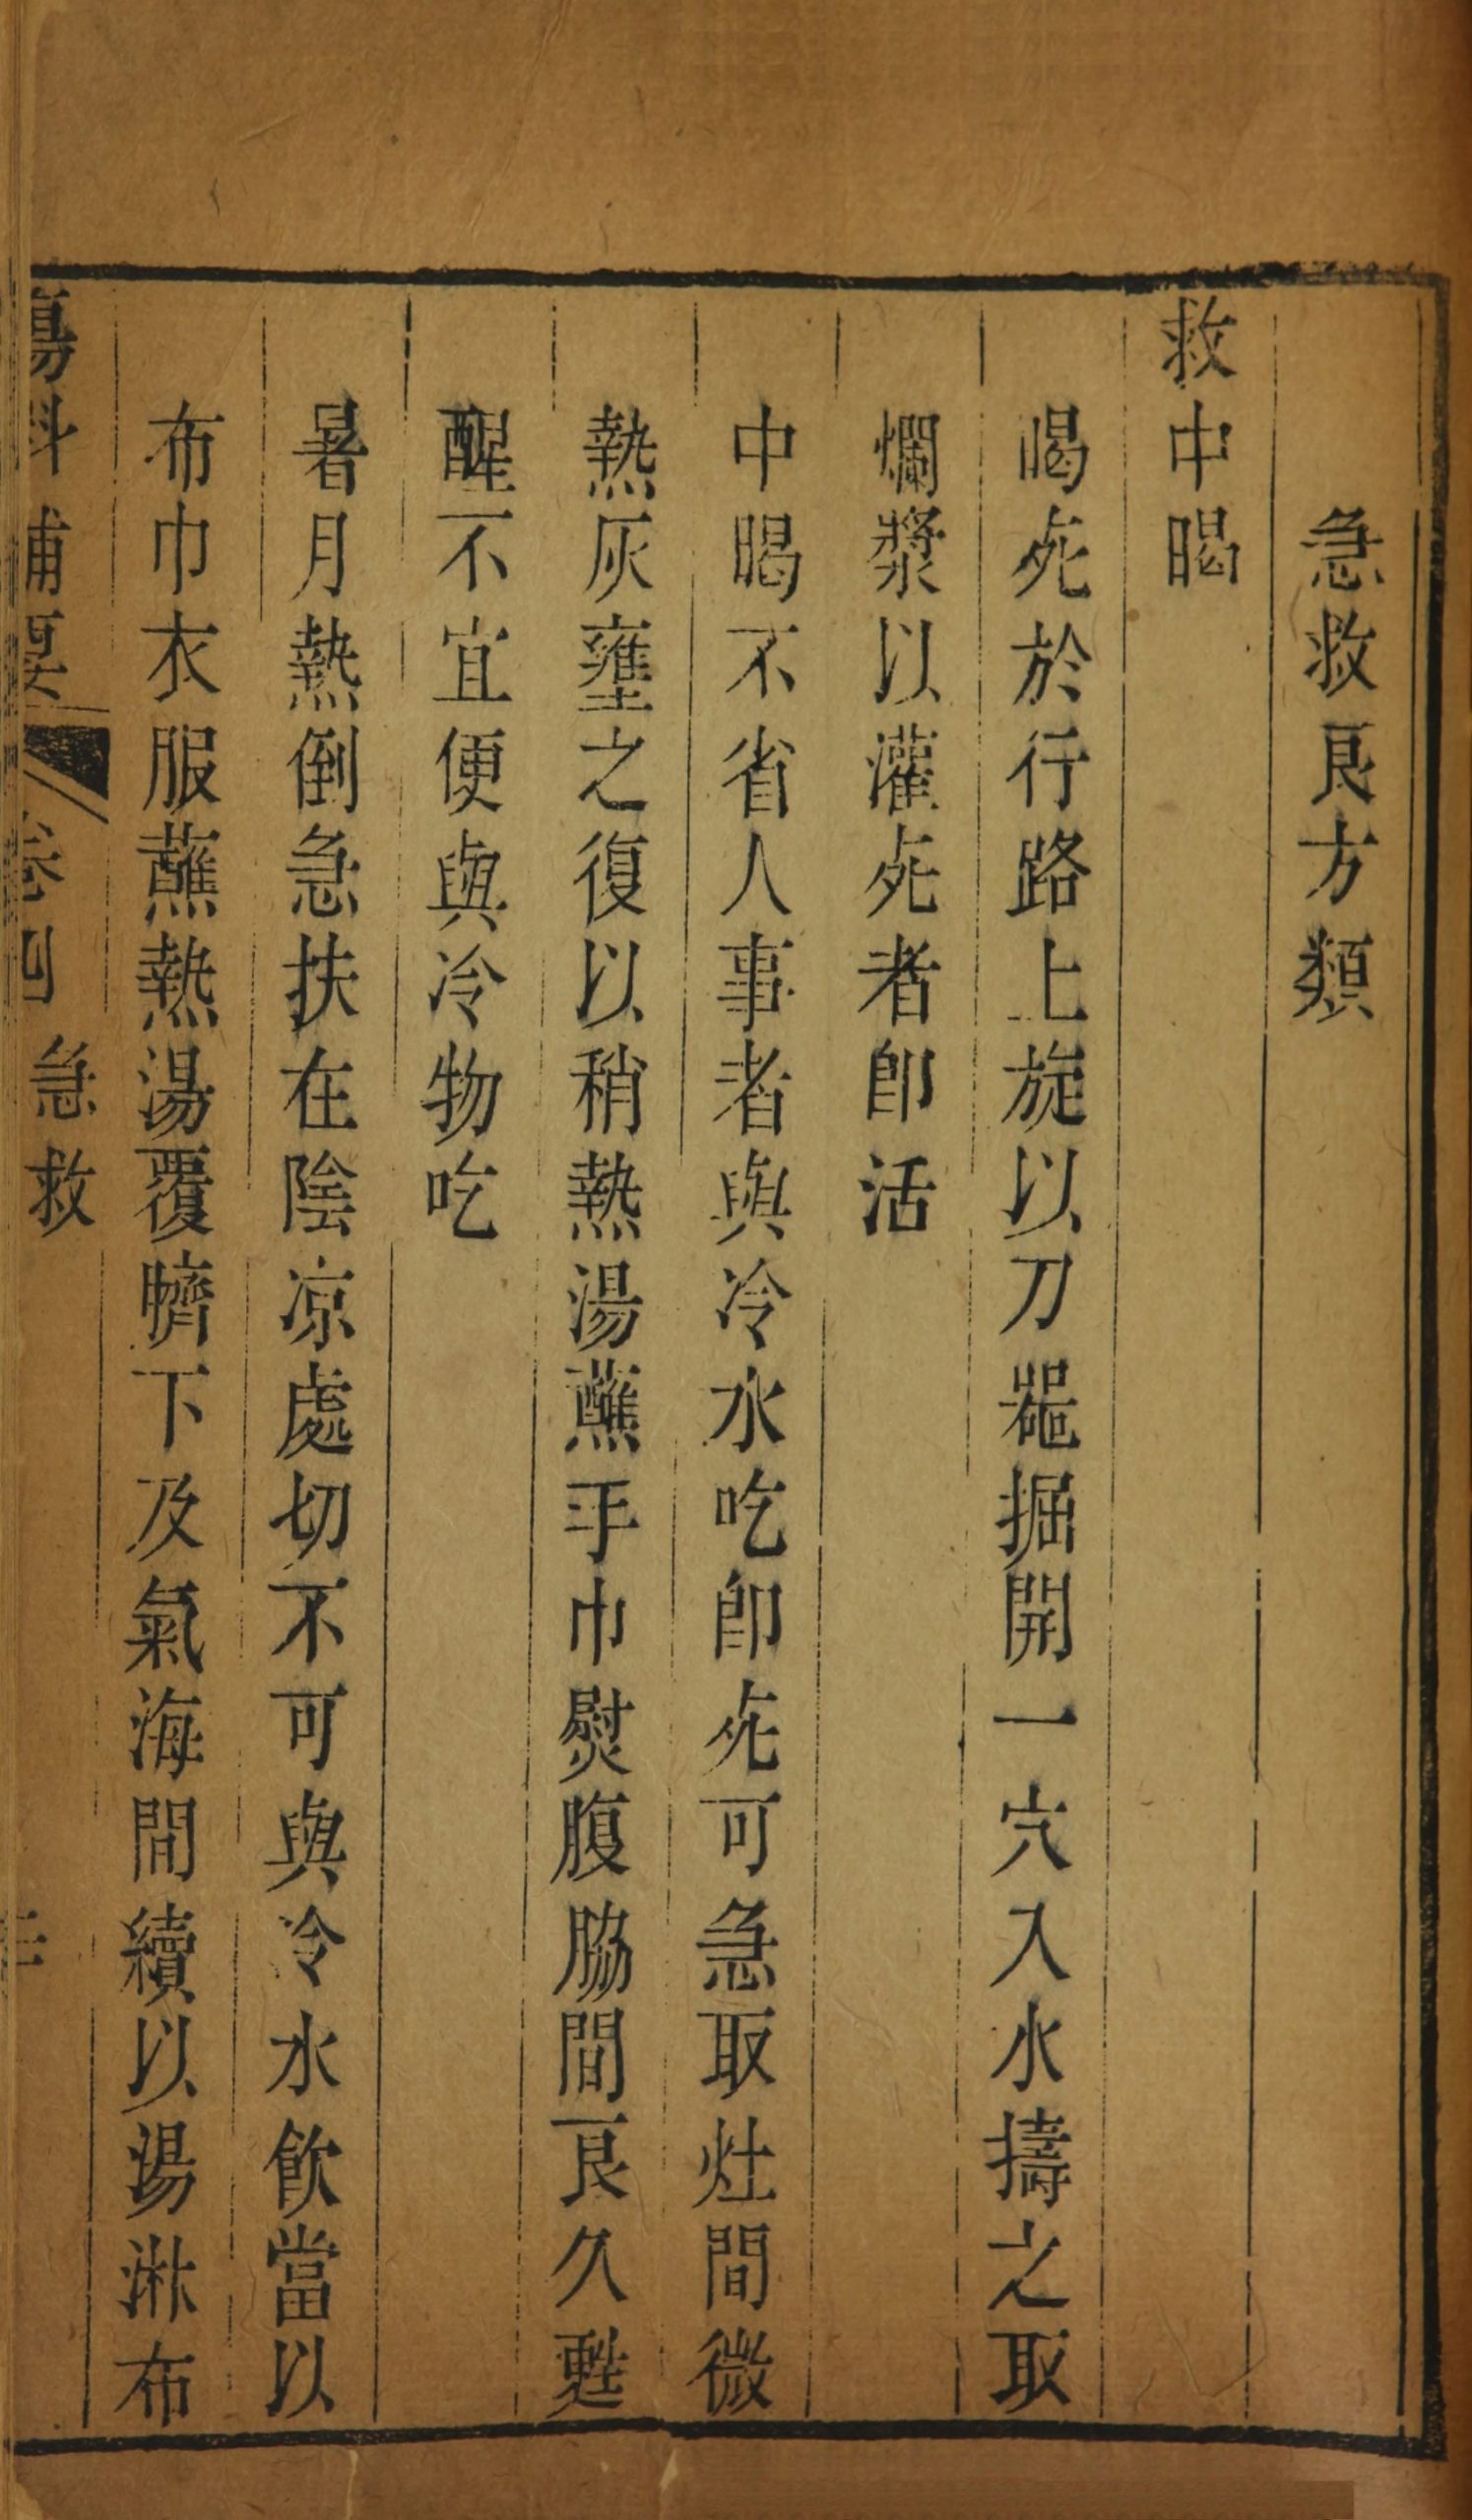 急救良方類
救中暍
暍死於行路上旋以刀器掘開一穴入水擣之取
爛漿以灌死者卽活
中暍不省人事者與冷水吃卽死可急取灶間微
熱灰壅之復以稍熱湯蘸手巾熨腹脇間良久甦
醒不宜便與冷物吃
暑月熱倒急扶在陰凉處切不可與冷水飮當以
布巾衣服蘸熱湯覆臍下及氣海間續以湯淋布
傷科補要 卷四 急救